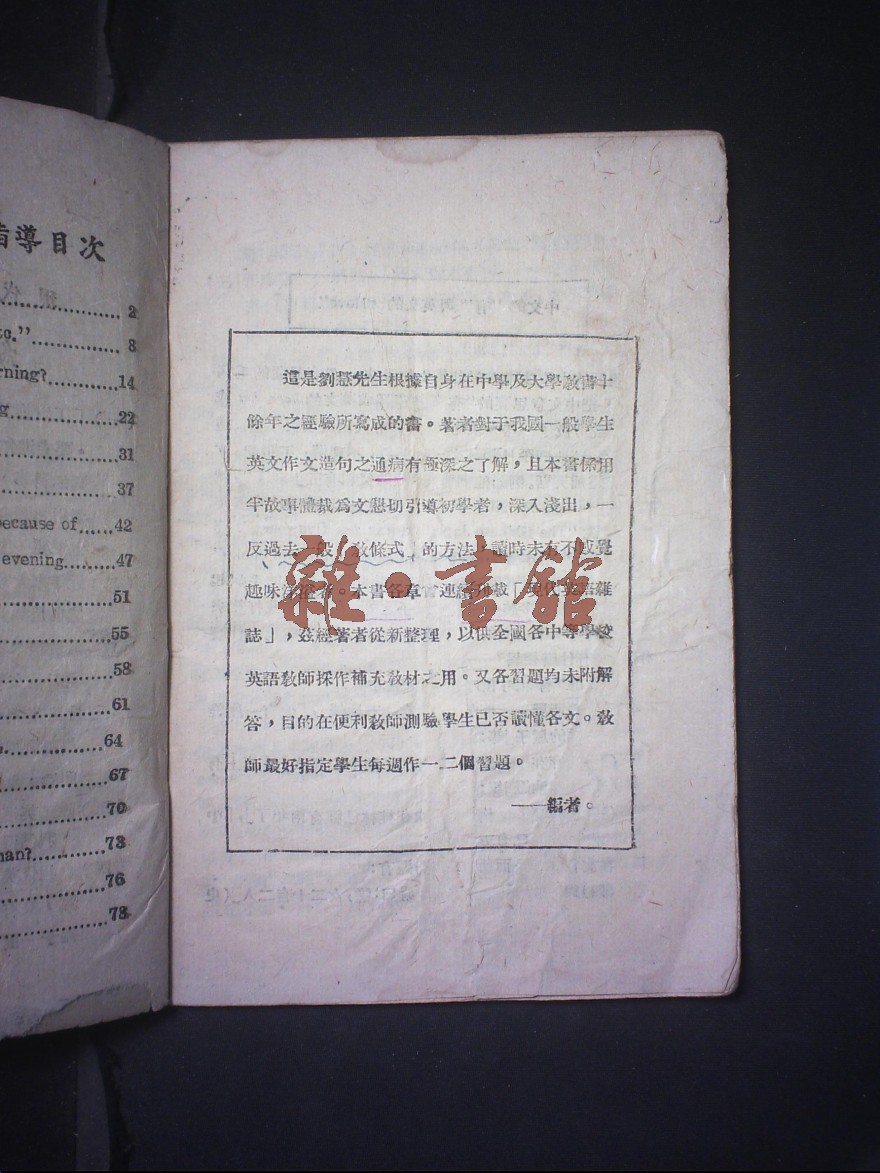 指導目次
2
to.”
8
rning?
14
g
22
31
37
because of
42
evening
47
51
55
58
61
64
67
70
man?
73
76
78
這是劉慧先生根據自身在中學及大學敎書十
餘年之經驗所寫成的書。著者對于我國一般學生
英文作文造句之通病有極深之了解，且本書係用
半故事體裁為文懇切引導初學者，深入淺出，一
反過去一般「敎條式」的方法，讀時未有不感覺
趣味洋溢者。本書各章曾連續刊載「現代英語雜
誌」，茲經著者從新整理，以供全國各中等學校
英語敎師採作補充敎材之用。又各習題均未附解
答，目的在便利敎師測驗學生已否讀懂各文。敎
師最好指定學生每週作一二個習題。
——編者。
雜·書館